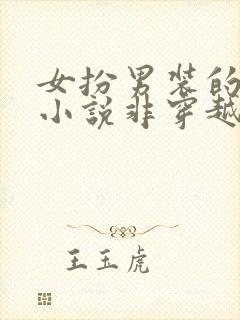 女扮男装的
小说非穿越
王玉虎